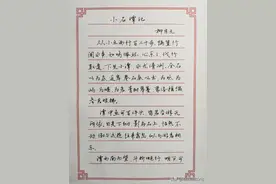 小石潭记
柳宗元
从小丘西行百二十步，隔篁竹
闻水声，如鸣珮环，心乐之。伐竹
取道，下见小潭，水尤清冽。全石
以为底，近岸，卷石底以出，为坻，为屿
为嵁，为岩。青树翠蔓，蒙络摇缀
参差披拂。
潭中鱼可百许头，皆若空游无
所依。日光下澈，影布石上，佁然不
动；俶尔远逝，往来翕忽，似与游者相
乐。
潭西南而望，斗折蛇行，明灭可